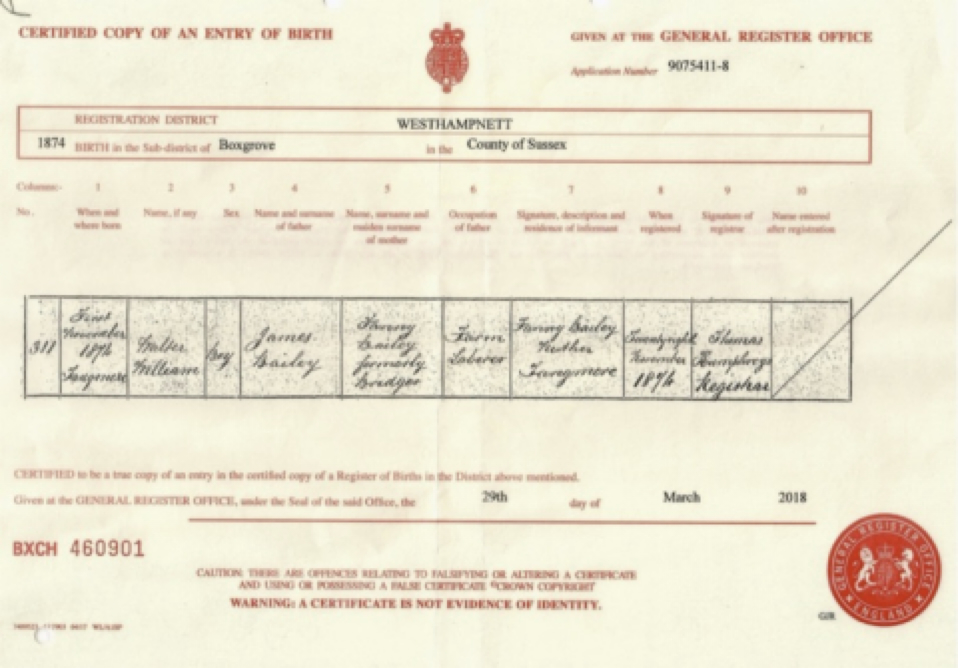 CERTIFIED COPY OF AN ENTRY OF BIRTH
GIVEN AT THE GENERAL REGISTER OFFICE
Application Number 9075411-8
REGISTRATION DISTRICT WESTHAMPNETT
1874 BIRTH in the Sub-district of Boxgrove in the County of Sussex
Columns:- 1 2 3 4 5 6 7 8 9 10
No. When and where born Name, if any Sex Name and surname of father Name, surname and maiden surname of mother Occupation of father Signature, description and residence of informant When registered Signature of registrar Name entered after registration
311
First
November
1874
Walter
William
Boy
James
Bailey
Fanny
Bailey
formerly
Bridger
Farm
Laborer
Fanny Bailey
Mother
November
1874
Thomas
Humphrys
Registrar
CERTIFIED to be a true copy of an entry in the certified copy of a Register of Births in the District above mentioned.
Given at the GENERAL REGISTER OFFICE, under the Seal of the said Office, the 29th day of March 2018
BXCH 460901
CAUTION: THERE ARE OFFENCES RELATING TO FALSIFYING OR ALTERING A CERTIFICATE
AND USING OR POSSESSING A FALSE CERTIFICATE ©CROWN COPYRIGHT
WARNING: A CERTIFICATE IS NOT EVIDENCE OF IDENTITY.
GENERAL REGISTER OFFICE
ENGLAND